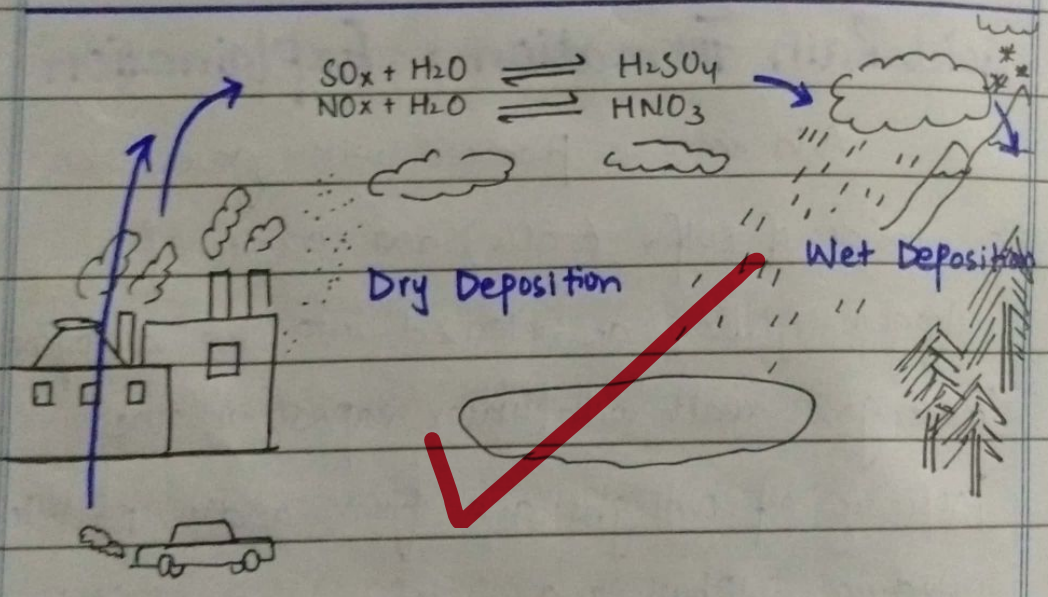 SOx + H2O ⇌ H2SO4
NOx + H2O ⇌ HNO3
Dry Deposition
Wet Deposition